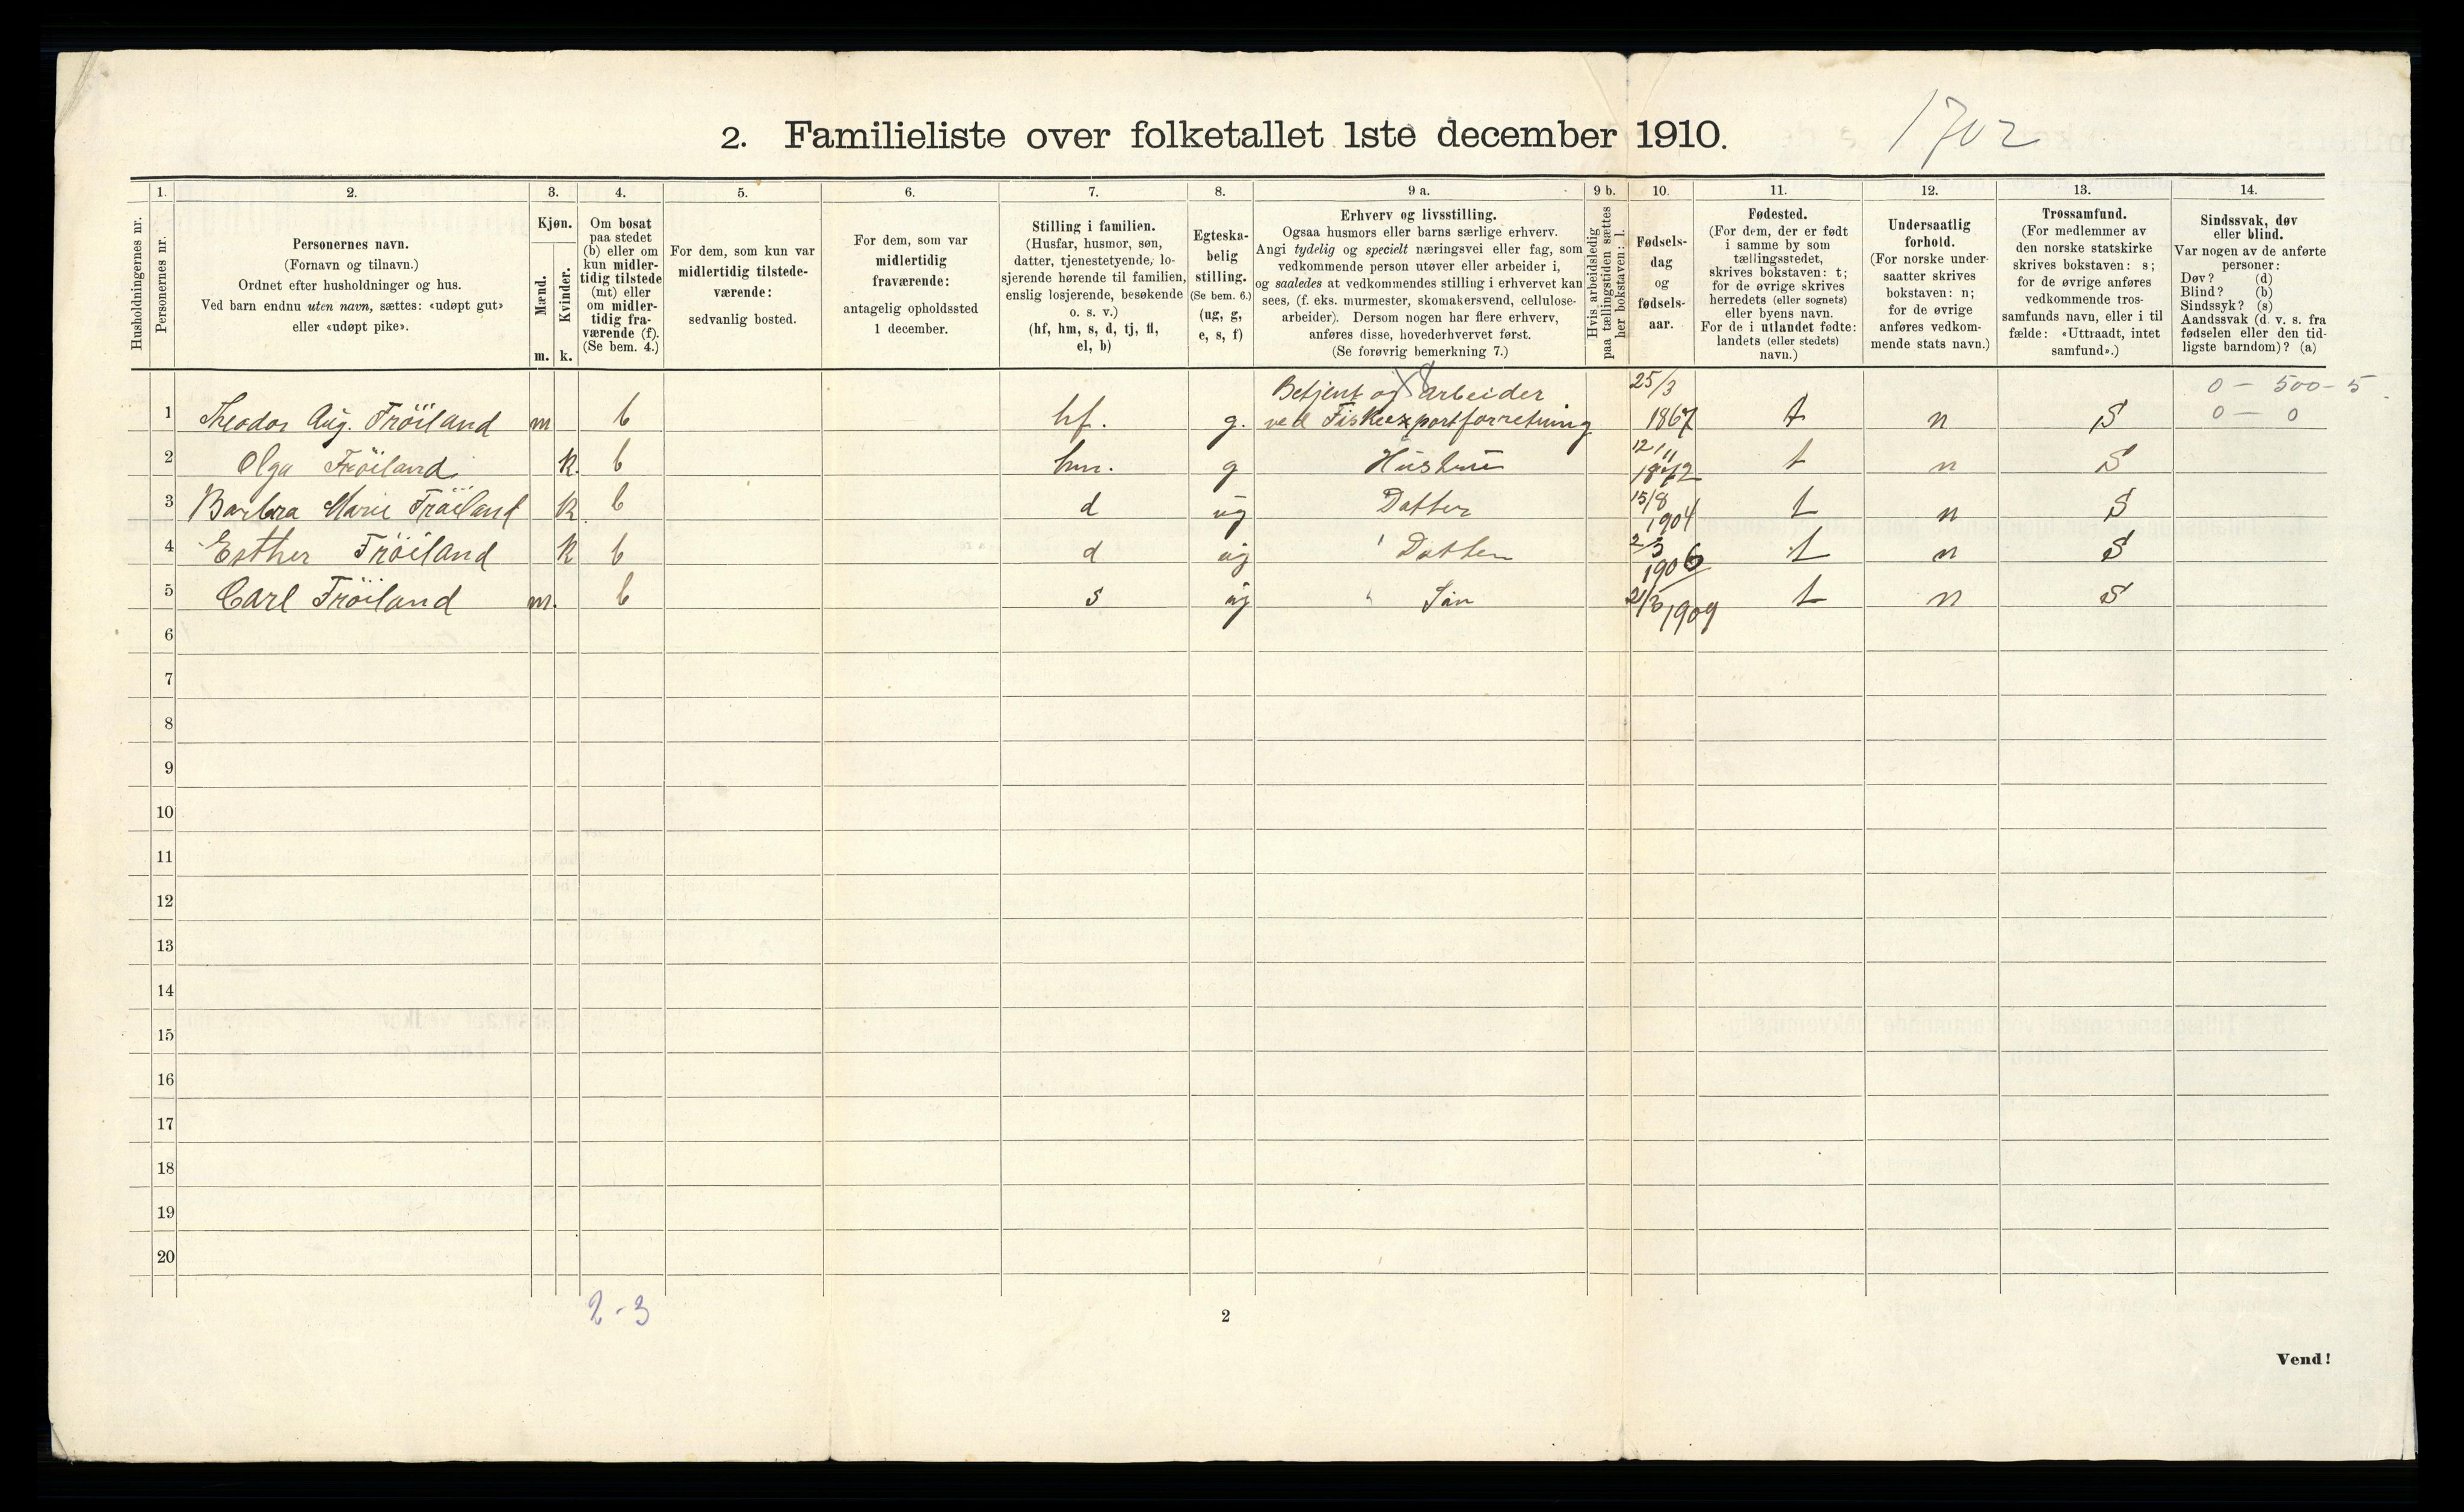 2. Familieliste over folketallet 1ste december 1910.
1702
1. 2. 3. 4. 5. 6. 7. 8. 9 a. 9 b. 10. 11. 12. 13. 14.
Husholdningernes nr.
Personernes nr.
Personernes navn.
(Fornavn og tilnavn.)
Ordnet efter husholdninger og hus.
Ved barn endnu uten navn, sættes: «udøpt gut»
eller «udøpt pike».
Kjøn.
Mænd.
Kvinder.
m. k.
Om bosat
paa stedet
(b) eller om
kun midler-
tidig tilstede
(mt) eller
om midler-
tidig fra-
værende (f).
(Se bem. 4.)
For dem, som kun var
midlertidig tilstede-
værende:
sedvanlig bosted.
For dem, som var
midlertidig
fraværende:
antagelig opholdssted
1 december.
Stilling i familien.
(Husfar, husmor, søn,
datter, tjenestetyende, lo-
sjerende hørende til familien,
enslig losjerende, besøkende
o. s. v.)
(hf, hm, s, d, tj, fl,
el, b)
Egteska-
belig
stilling.
(Se bem. 6.)
(ug, g,
e, s, f)
Erhverv og livsstilling.
Ogsaa husmors eller barns særlige erhverv.
Angi tydelig og specielt næringsvei eller fag, som
vedkommende person utøver eller arbeider i,
og saaledes at vedkommendes stilling i erhvervet kan
sees, (f. eks. murmester, skomakersvend, cellulose-
arbeider). Dersom nogen har flere erhverv,
anføres disse, hovederhvervet først.
(Se forøvrig bemerkning 7.)
Hvis arbeidsledig
paa tællingstiden sættes
her bokstaven: l.
Fødsels-
dag
og
fødsels-
aar.
Fødested.
(For dem, der er født
i samme by som
tællingsstedet,
skrives bokstaven: t;
for de øvrige skrives
herredets (eller sognets)
eller byens navn.
For de i utlandet fødte:
landets (eller stedets)
navn.)
Undersaatlig
forhold.
(For norske under-
saatter skrives
bokstaven: n;
for de øvrige
anføres vedkom-
mende stats navn.)
Trossamfund.
(For medlemmer av
den norske statskirke
skrives bokstaven: s;
for de øvrige anføres
vedkommende tros-
samfunds navn, eller i til
fælde: «Uttraadt, intet
samfund».)
Sindssvak, døv
eller blind.
Var nogen av de anførte
personer:
Døv? (d)
Blind? (b)
Sindssyk? (s)
Aandssvak (d. v. s. fra
fødselen eller den tid-
ligste barndom)? (a)
Betjent og Arbeider 25/3 0 - 500 - 5
1 Theodor Aug. Fröiland m b hf. g. ved Fiskeexportforretning 1867 t n S 0 - 0
2 Olga Fröiland k. b hm. g Hustru 12/11 1872 t n S
3 Barbra Marie Fröiland k b d ug Datter 15/8 1904 t n S
4 Esther Fröiland k b d ug Datter 2/3 1906 t n S
5 Carl Fröiland m. b s ug Sön 21/5 1909 t n S
6
7
8
9
10
11
12
13
14
15
16
17
18
19
20
2-3
2
Vend!